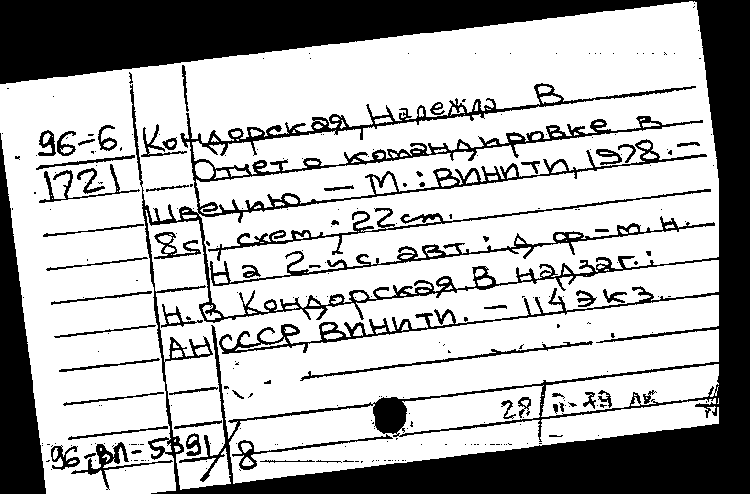 96-6 Кондорская, Надежда В
1721 Отчет о командировке в
Швецию. — М.: ВИНИТИ, 1978. —
8с., схем.; 22 см.
На 2-й с. авт.: д. ф.-м. н.
Н. В. Кондорская. В надзаг.:
АН СССР, ВИНИТИ. — 114 экз.
28/II-79
96-ВП-5391/8